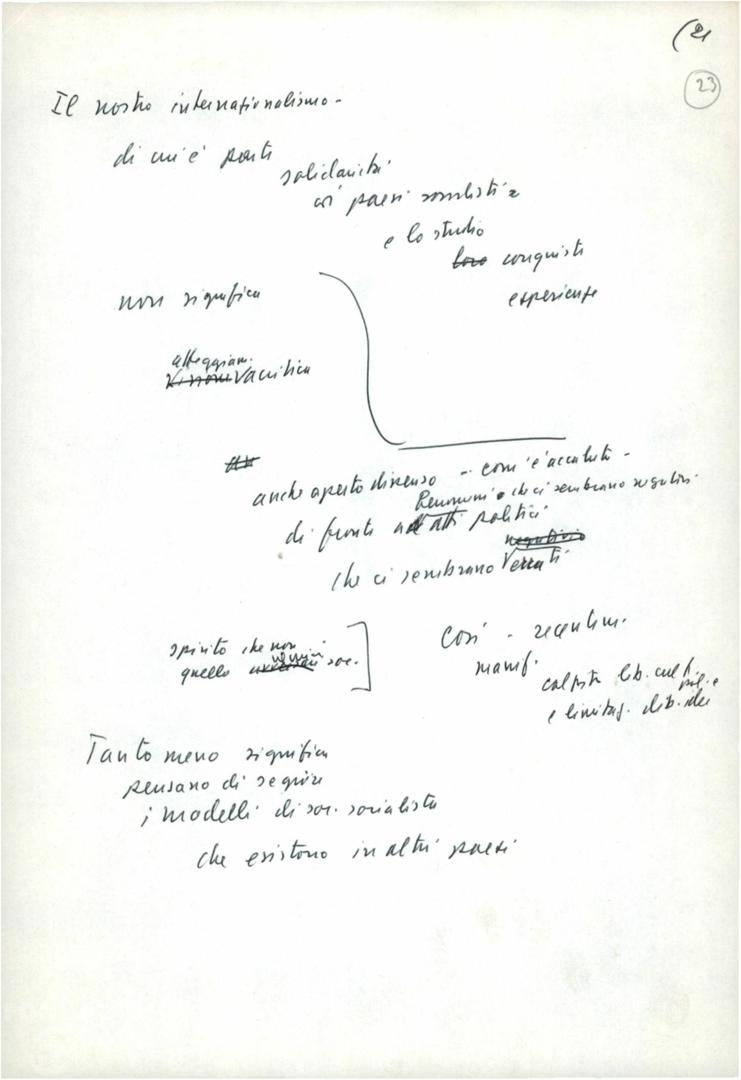 (21
23
Il nostro internazionalismo -
di cui è parte
solidarietà
coi paesi socialisti
e lo studio
loro conquiste
esperienze
non significa
atteggiam.
acritica
anche aperto dissenso - com'è accaduto -
che ci sembrano negativi
di fronte ad atti politici
negativi
che ci sembrano errati
spirito che non
quello soc.
Così - recentem.
manif.
calpesta lib. cult.
e limitaz. lib. idee
Tanto meno significa
pensano di seguire
i modelli di soc. socialista
che esistono in altri paesi